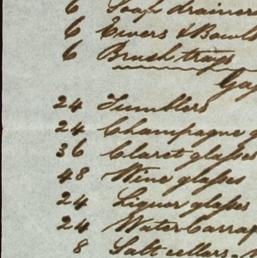 6 Soap drainers
6 Ewers & Bowls
6 Brush trays
24 Tumblers
24 Champagne g
36 Claret glasses
48 Wine glasses
24 Liquor glasses
24 Water Carraf
8 Salt cellars